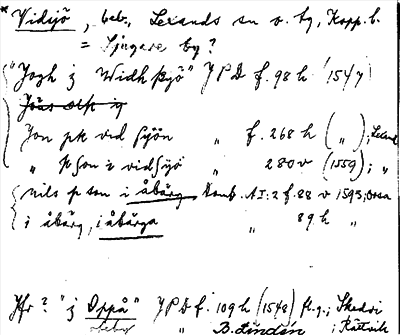 * Vidsjö, beb., Leksands sn o. by, Kopp. l.
= Sjugare by?
"Jogh j Widh siyö" JPD f. 98 h (1547)
Jon pk vid syön " f. 268 h (");
" p son i vidsyö " 280 v (1559); "
Nils p son i åbärg Komb. AI:2 f. 88 v 1593; Orsa
i åbärg, i åbärga " 89 h "
Jfr? "j Oppå" JPD f. 109 h (1548) fl. g.; Skedvi
" B. Lindén ; Rättvik